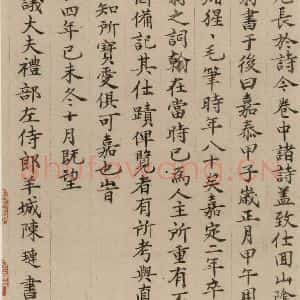 尤長於詩今卷中諸詩蓋致仕囬山陰
書于後曰嘉泰甲子歲正月甲午用
猩〻毛筆時年八十矣嘉定二年卒
翁之詞翰在當時已為人主所重有
因備記其仕蹟俾覽者有所考與直
知所寶愛俱可嘉也旹
四年己未冬十月既望
議大夫禮部左侍郎羊城陳璉書